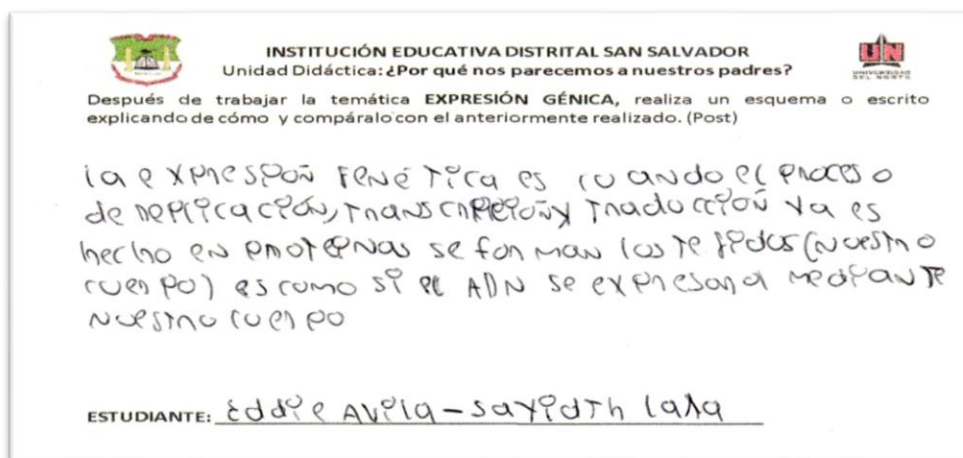 INSTITUCIÓN EDUCATIVA DISTRITAL SAN SALVADOR
Unidad Didáctica: ¿Por qué nos parecemos a nuestros padres?
UN
UNIVERSIDAD
DEL NORTE
Después de trabajar la temática EXPRESIÓN GÉNICA, realiza un esquema o escrito
explicando de cómo y compáralo con el anteriormente realizado. (Post)
la expresion fenética es cuando el proceso
de replicación, transcripción y traducción ya es
hecho en proteinas se forman los tejidos (nuestro
cuerpo) es como si el ADN se expresara mediante
nuestro cuerpo
ESTUDIANTE: Eddie Avila - Sayidth lara